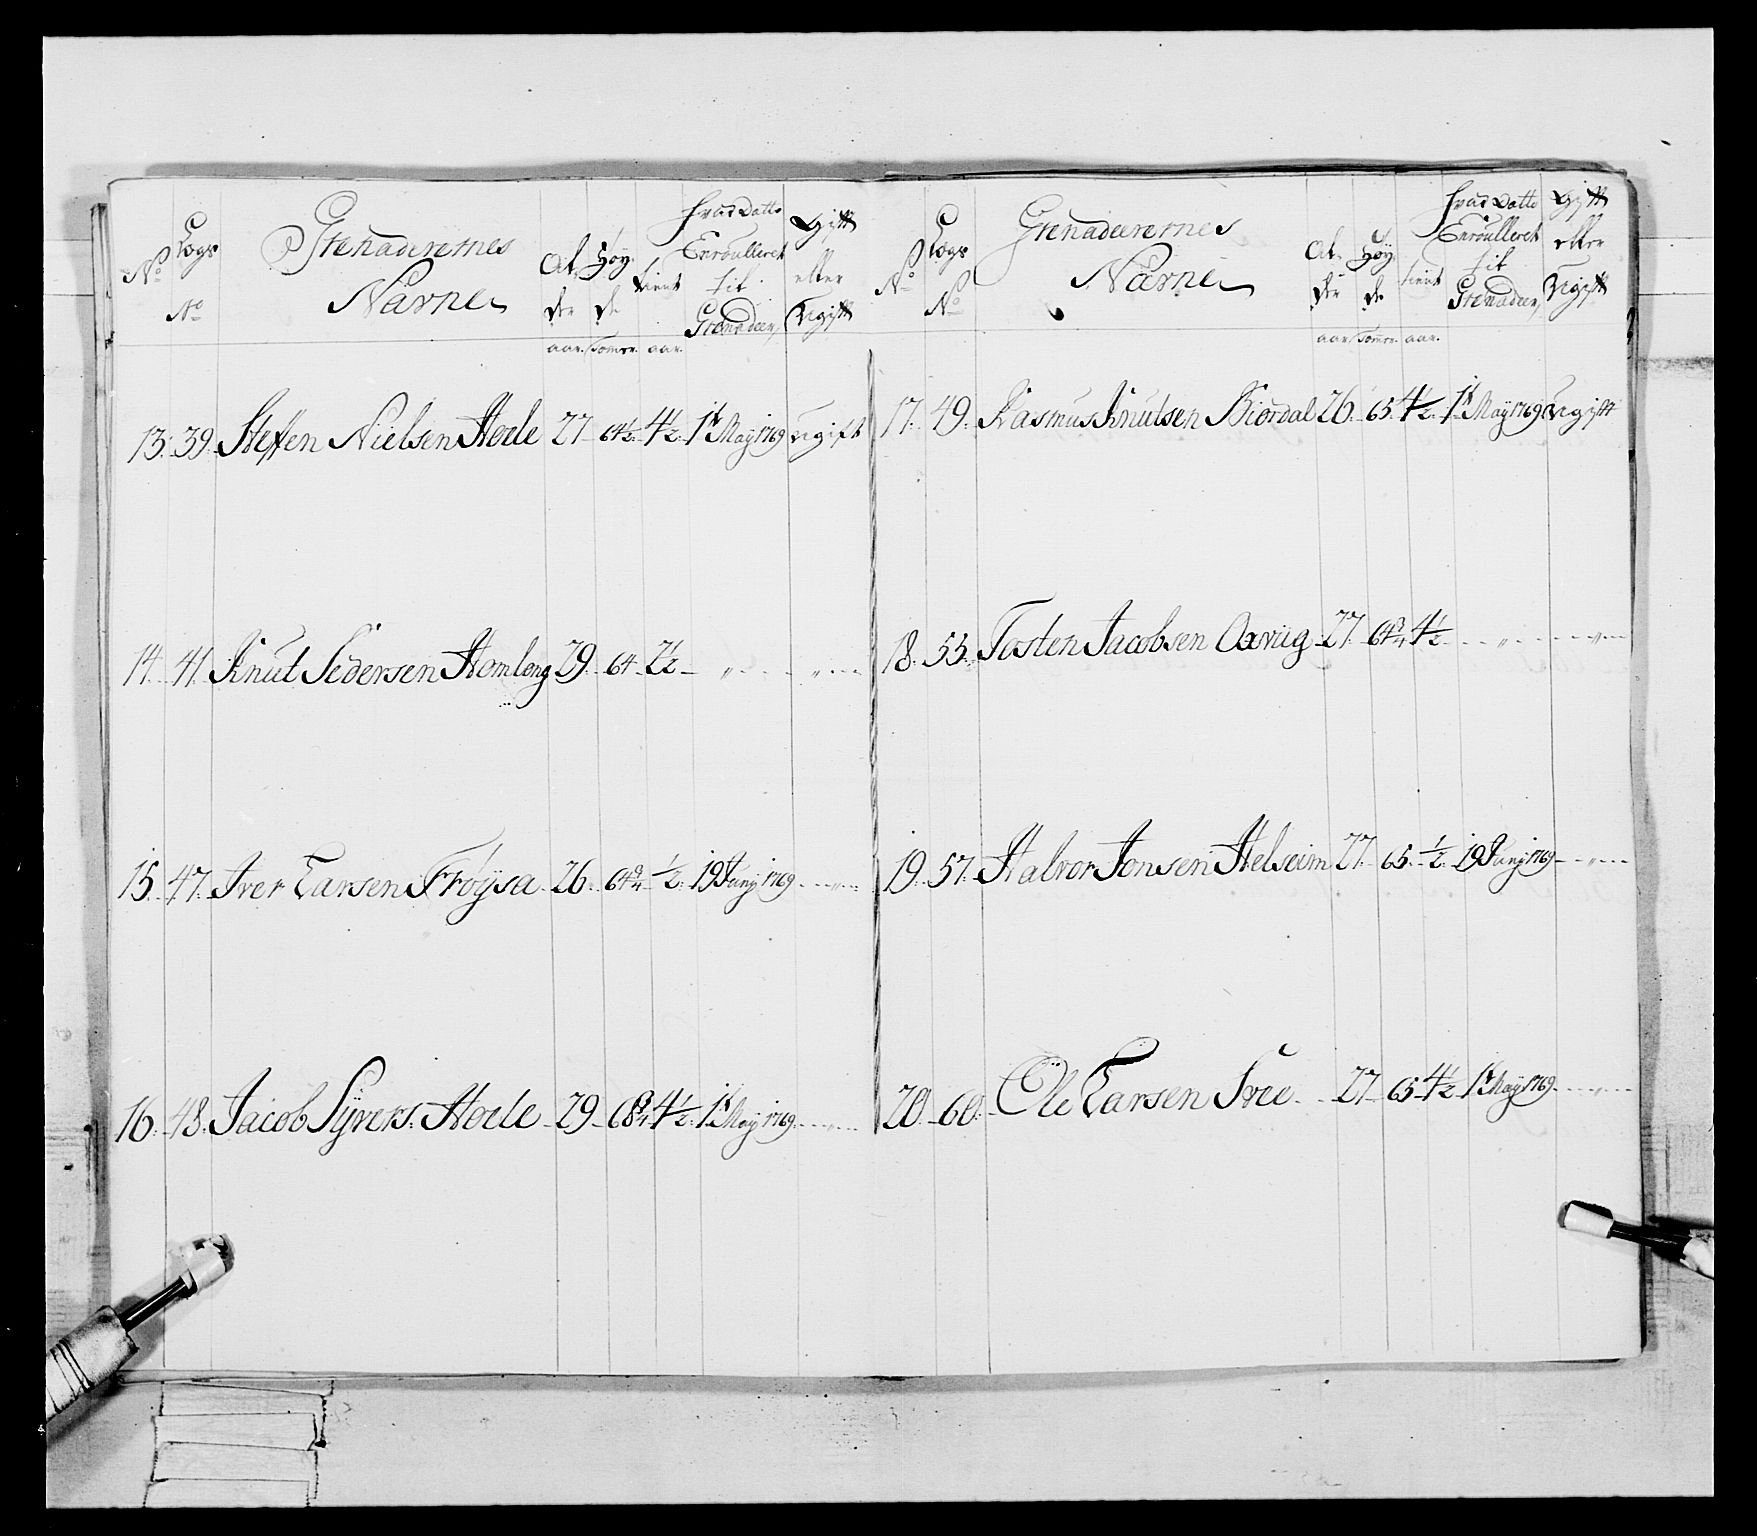 No
Lægs No
Grenadeerernes Navne
Al der
Høy de
tient
hvad Datto Enroulleret til Grenadeer,
Gift eller Ugift
aar. Tomer. aar.
13. 39. Steffen Nielsen Hoele 27 64½ 4½ 1t May 1769 Ugift
14. 41. Knut Pedersen Homlong 29. 64 2½ - „ - „ -
15. 47. Iver Larsen Frøysa 26. 64¾ ½ 19 Junj 1769 - „ -
16. 48. Jacob Syvers. Hoele 29 68¾ 4½ 1t May 1769 - „ -
No
Lægs No
Grenadeerernes Navne
Al der
Høy de
tient
hvad Datto Enroulleret til Grenadeer,
Gift eller Ugift
aar. Tomer. aar.
17. 49. Rasmus Knutsen Biordal 26. 65. 4½ 1t May 1769 Ugift
18. 53. Tosten Jacobsen Oxvig 27. 64¾ 4½ - „ - „ -
19. 57. Halvor Jonsen Helseim 27. 65. ½ 19 Junj 1769 - „ -
20. 60. Ole Larsen Free 27 65 4½ 1t May 1769 - „ -